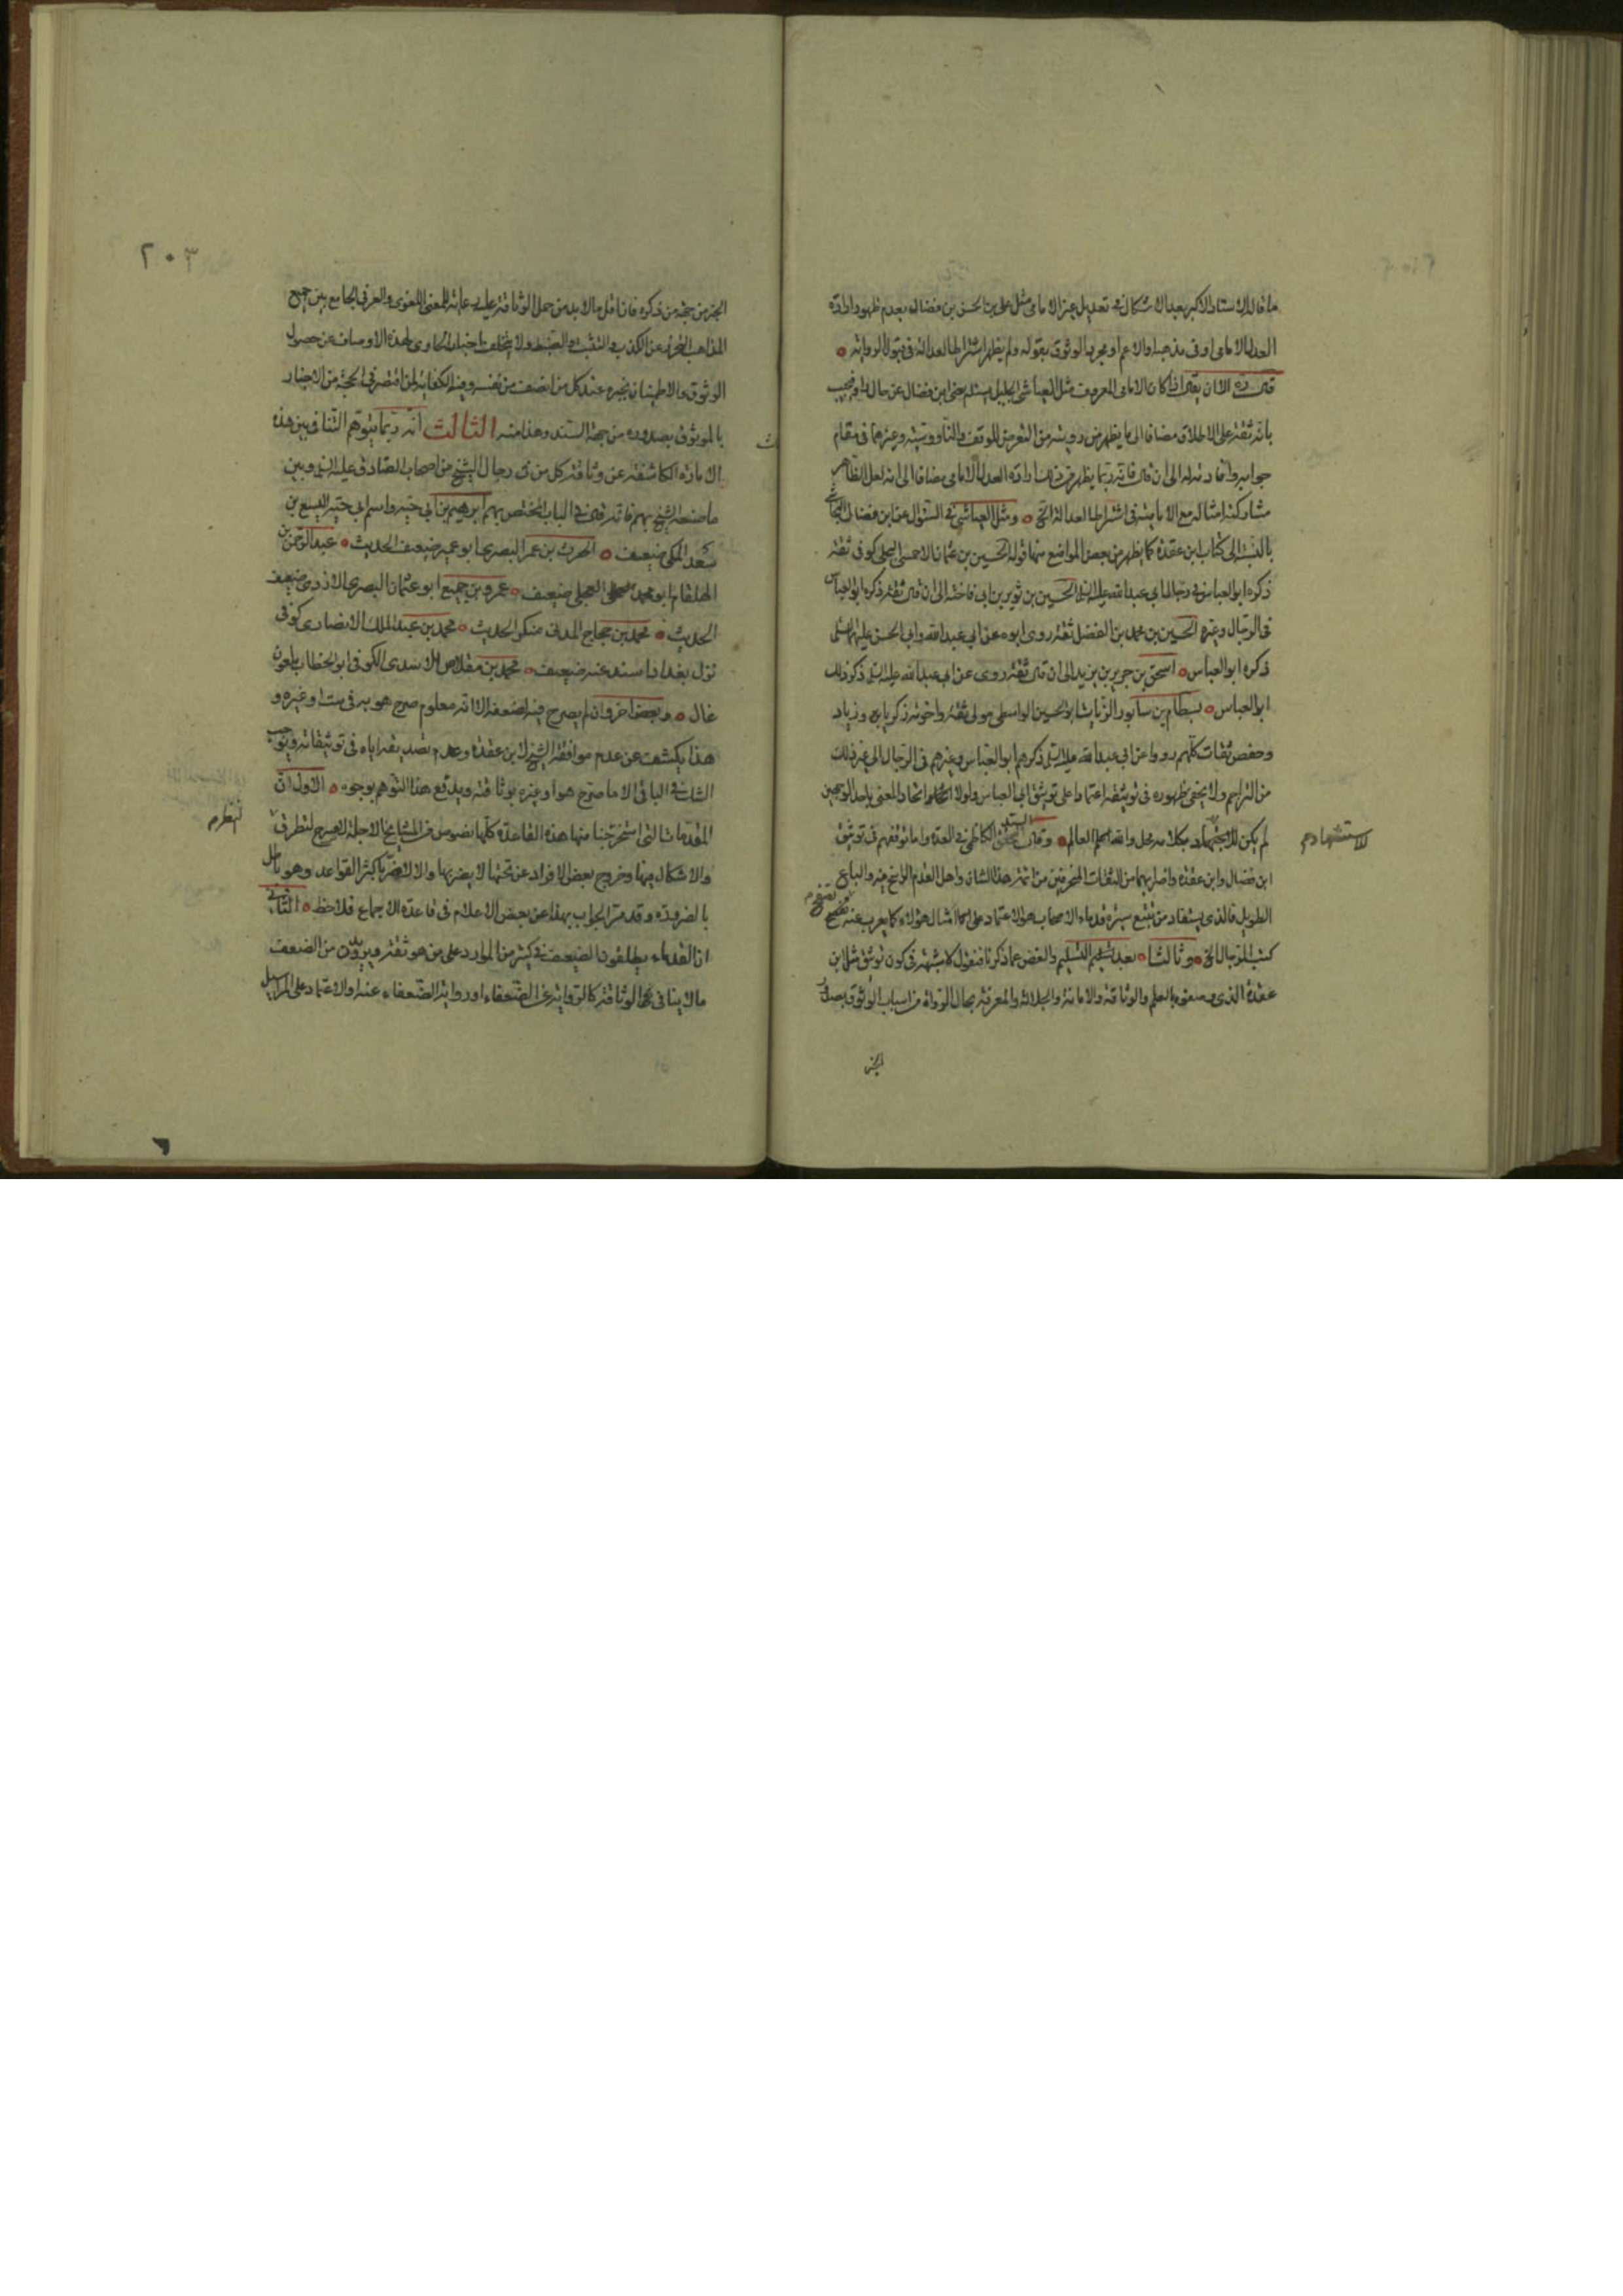 ما قاله الاستاد الاكبر بعد الاشكال فى تعديل غير الامامى مثل على بن الحسن بن فضال بعدم ظهور ارادة
العدل الامامى او فى مذهبه او الاعم او مجرد الوثوق بقوله ولم يظهر اشتراط العدالة فى قبول الرواية
الا ان يقال اذا كان الامامى المعروف مثل العياشى الجليل يسئله عن ابن فضال عن حال راو فيجيب
بانه ثقة على الاطلاق مضافا الى ما يظهر من رويته من التعرض للوقف والناووسية وغيرهما فى مقام
جوابه وافادته له الى ان قال فانه ربما يظهر من ذلك ارادة العدل الامامى مضافا الى انه لعل الظاهر
مشاركة امثاله مع الامامية فى اشتراط العدالة الخ ومثل العياشى فى السؤال عن ابن فضال النجاشى
بالنسبة الى كتاب ابن عقدة كما يظهر من بعض المواضع منها قوله الحسين بن عثمان الاحمسى البجلى كوفى ثقة
ذكره ابو العباس فى رجال ابي عبد الله عليه السلام الحسين بن ثوير بن ابي فاخته الى ان قال ثقة ذكره ابو العباس
فى الرجال وغيره الحسين بن محمد بن الفضل ثقة روى ابوه عن ابي عبد الله وابي الحسن عليهما السلام
ذكره ابو العباس اسحق بن جرير بن يزيد الى ان قال ثقة روى عن ابي عبد الله عليه السلام ذكر ذلك
ابو العباس بسطام بن سابور الزيات ابو الحسين الواسطى مولى ثقة واخوته زكريا وزياد
وحفص ثقات كلهم رووا عن ابي عبد الله عليه السلام ذكرهم ابو العباس وغيره فى الرجال الى غير ذلك
من التراجم ولا يخفى ظهوره فى توثيقه اعتمادا على توثيق ابي العباس ولولا اتحاد المعنى باحد الوجهين
لم يكن للاستشهاد بكلامه محل والله العالم وقال السيد المحقق الكاظمى فى العدة واما توقفهم فى توثيق
الاستشهاد م
ابن فضال وابن عقدة واضرابهما من الثقات المنحرفين من ائمة هذا الشان واهل القدم الراسخ فيه والباع
الطويل فالذى يستفاد من تتبع سيرة قدماء الاصحاب هو الاعتماد على امثال هؤلاء كما يعرب عنه تصفح
كتب الرجال الخ وثالثا بعد التسليم والغض عما ذكرنا فنقول لا شبهة فى كون توثيق مثل ابن
عقدة الذى وصفوه بالعلم والوثاقة والامانة والجلالة والمعرفة بحال الرواة من اسباب الوثوق بصدور
الخبر
٢٠٣
الخبر من جهة من ذكره فان اقل ما لا بد من حمل الوثاقة عليه عاية المعنى اللغوى والعرفى الجامع بين جميع
المذاهب التحرز عن الكذب والتثبت والضبط ولا يتخلف اخبار الحاوى لهذه الاوصاف عن حصول
الوثوق والاطمينان بخبره عند كل من انصف من نفسه وفيه الكفاية لمن اقتصر فى الحجة من الاخبار
بالموثوق بصدوره من جهة السند وهذا منه الثالث انه ربما يتوهم التنافى بين هذه
الامارة الكاشفة عن وثاقة كل من فى رجال الشيخ من اصحاب الصادق عليه السلام وبين
ما صنعه الشيخ بهم فانه قال فى الباب المختص بهم ابرهيم بن ابي حيه واسم ابي حيه اليسع بن
سعد المكى ضعيف الحرث بن عمر البصرى ابو عمير ضعيف الحديث عبد الرحمن بن
الهلقام ابو محمد العجلى ضعيف عمرو بن جميع ابو عثمان البصرى الازدى ضعيف
الحديث محمد بن حجاج المدنى منكر الحديث محمد بن عبد الملك الانصارى كوفى
نزل بغداد اسند عنه ضعيف محمد بن مقلاص الاسدى الكوفى ابو الخطاب ملعون
غال وبعض اخر وان لم يصرح فيه بضعفه الا انه معلوم صرح هو به فى ست او غيره و
هذا يكشف عن عدم موافقة الشيخ لابن عقدة وعدم تصديقه اياه فى توثيقاته ويوجب
الشك فى الباقى الا ما صرح هو او غيره بوثاقته ويدفع هذا التوهم بوجوه الاول ان
المقدمات التى استخرجنا منها هذه القاعدة كلها نصوص من المشايخ الاجلة لتطرق
لتطرق م
والاشكال فيها وخروج بعض الافراد عن تحتها لا يضر بها والا لاضر باكثر القواعد وهو باطل
بالضرورة وقد مر الجواب بهذا عن بعض الاعلام فى قاعدة الاجماع فلاحظ الثانى
ان القدماء يطلقون الضعيف فى كثير من الموارد على من هو ثقة ويريدون من الضعف
ما لا ينافى الوثاقة كالرواية عن الضعفاء او رواية الضعفاء عنه او الاعتماد على المراسيل